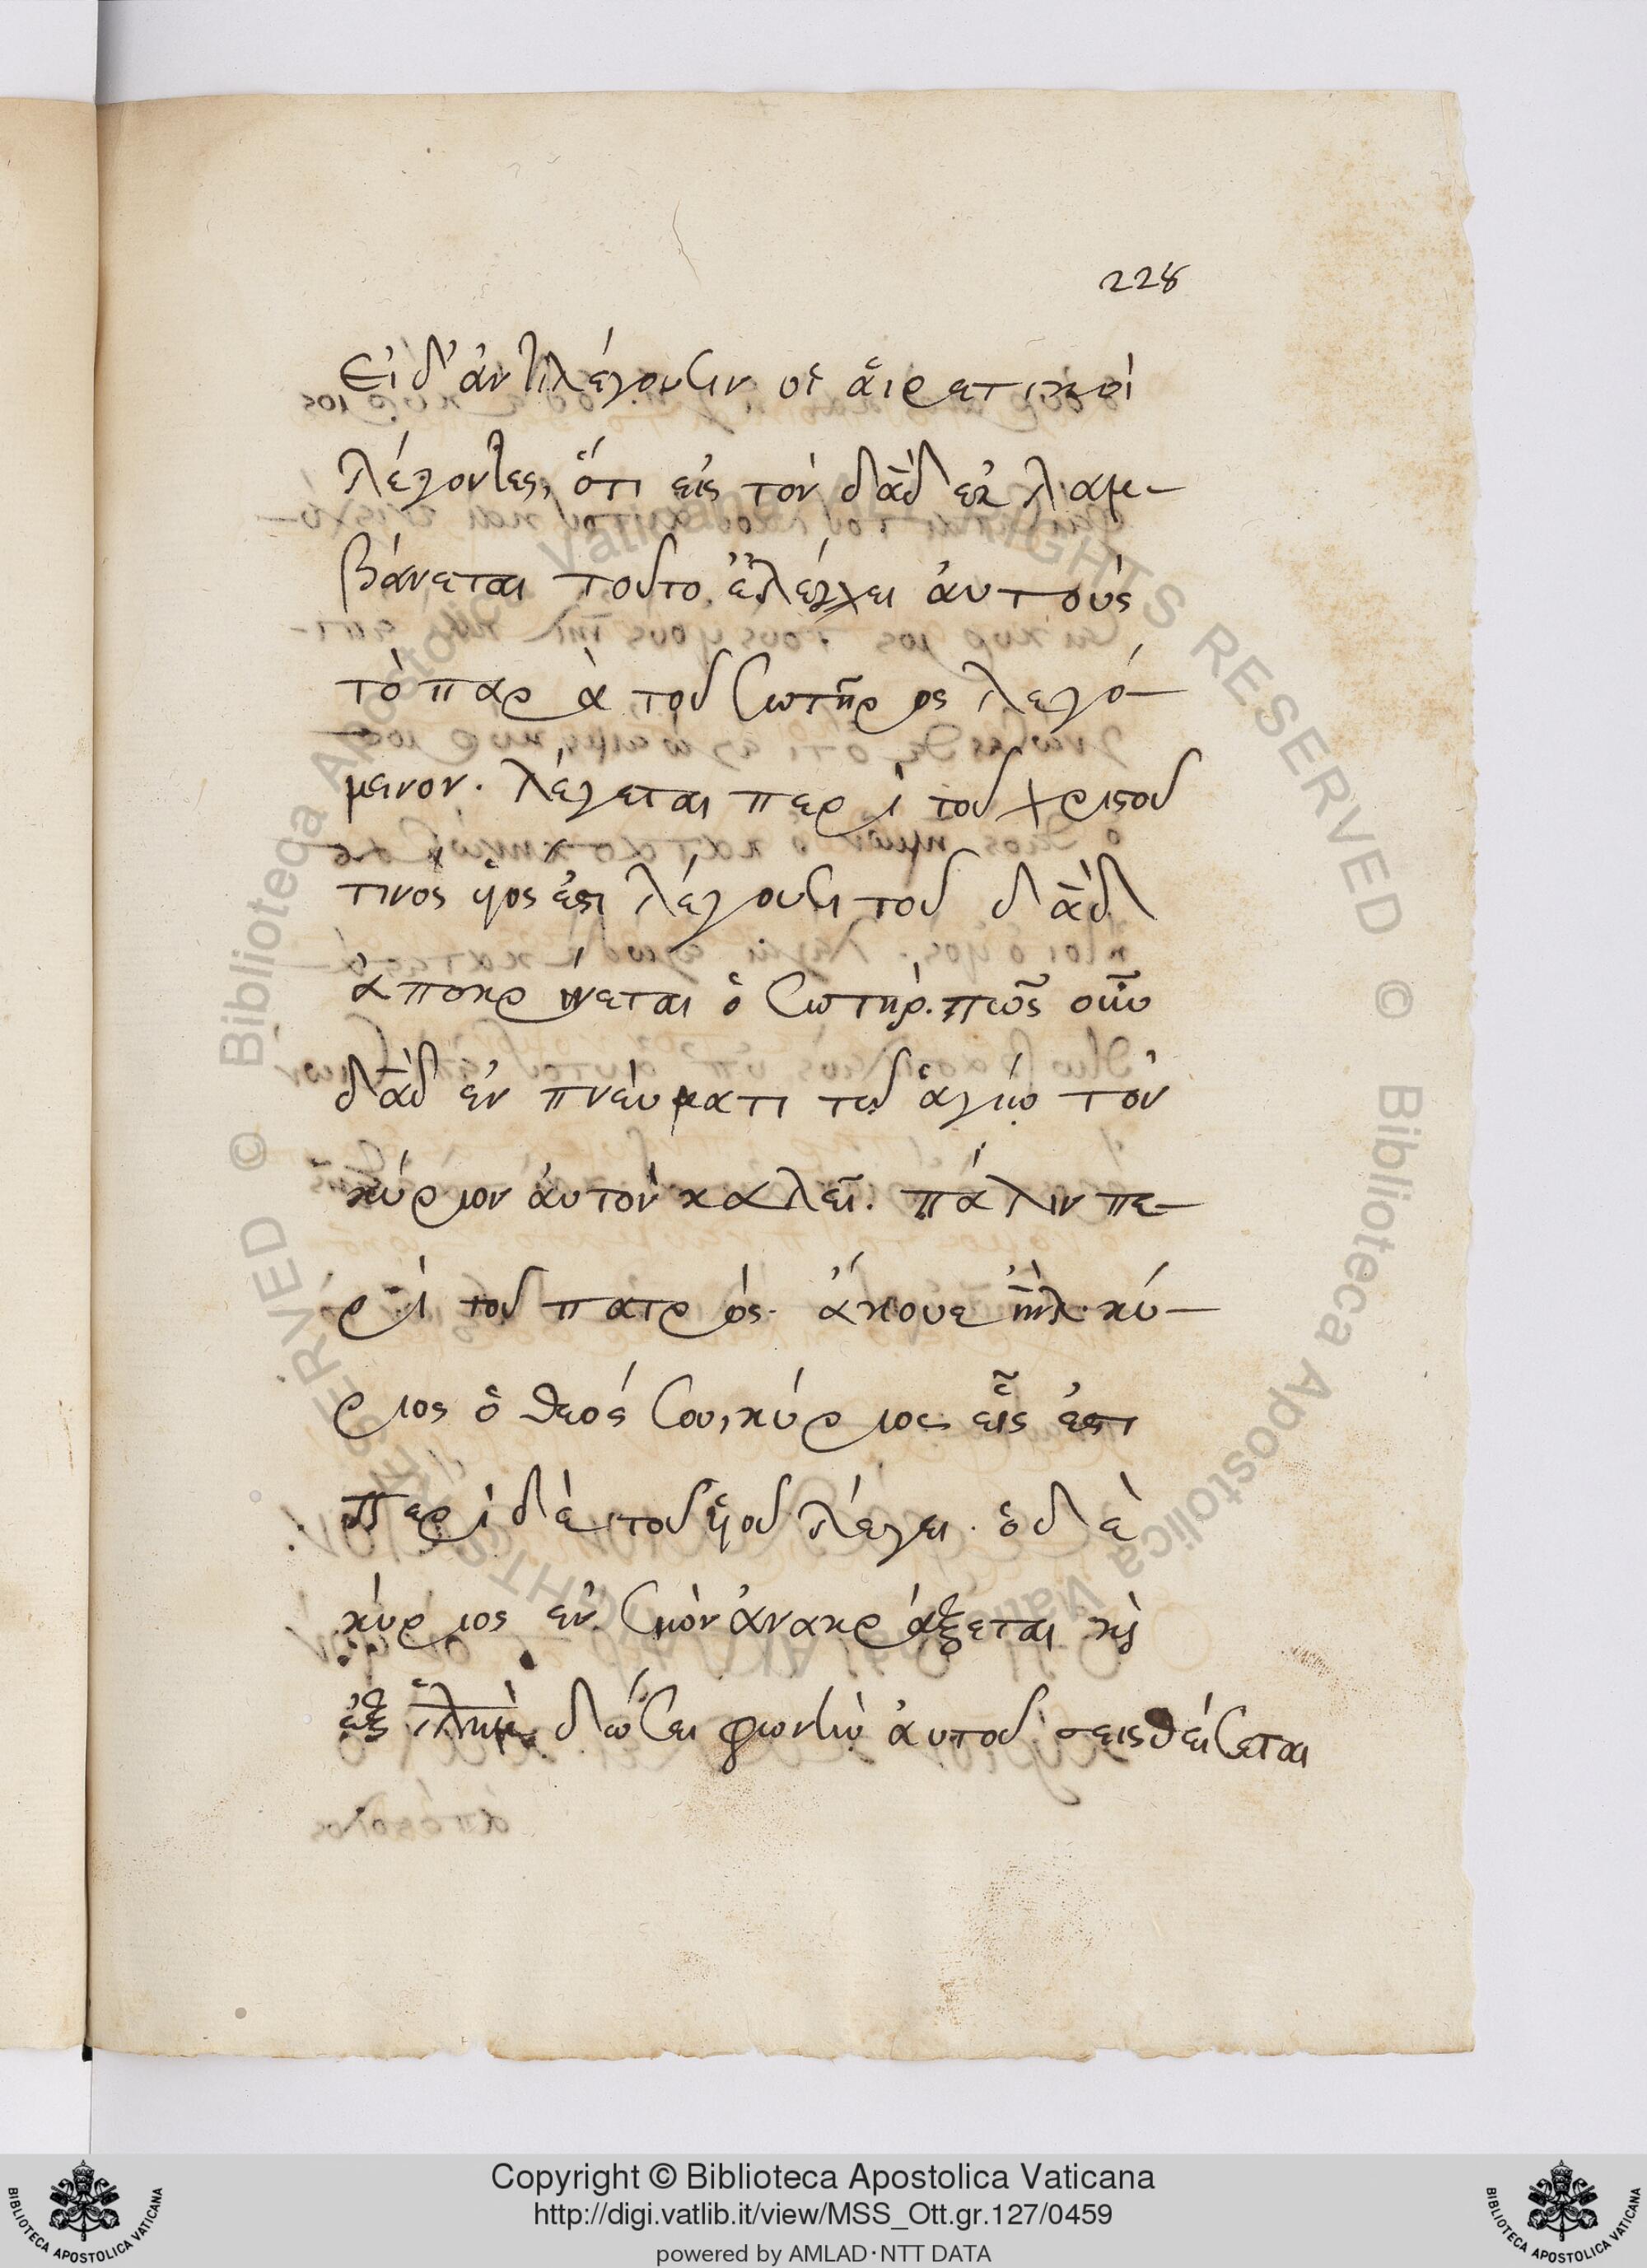 228
Εἰ δ' ἀντιλέγουσιν οἱ ἁιρετικοὶ
λέγοντες, ὅτι εἰς τὸν δᾱδ ἐκλαμ-
βάνεται τοῦτο. ἐλέγχει ἀυτοὺς
τὸ παρὰ τοῦ σωτῆρος λεγό-
μεινον. λέγεται περὶ τοῦ χριστοῦ
τινὸς υἱος ἐστι λέγουσι τοῦ δᾱδ
ἀποκρίνεται ὁ σωτήρ. πῶς οὖν
δᾱδ ἐν πνεύματι τῶ ἁγίω τὸν
κύριον ἀυτὸν καλεῖ. πάλιν πε-
ρὶ τοῦ πατρός. ἄκουε ιηλ. κύ-
ριος ὁ θεός σου, κύριος εἷς ἐστι
περὶ δὲ τοῦ υἱοῦ λέγει. ὁ δὲ
κύριος ἐν σιὼν ἀνακράξεται κὶ
ἐξ ἱλημ δώσει φωνὴν ἀυτοῦ σεισθείσεται
Copyright © Biblioteca Apostolica Vaticana
http://digi.vatlib.it/view/MSS_Ott.gr.127/0459
powered by AMLAD·NTT DATA
BIBLIOTECA APOSTOLICA VATICANA
BIBLIOTECA APOSTOLICA VATICANA